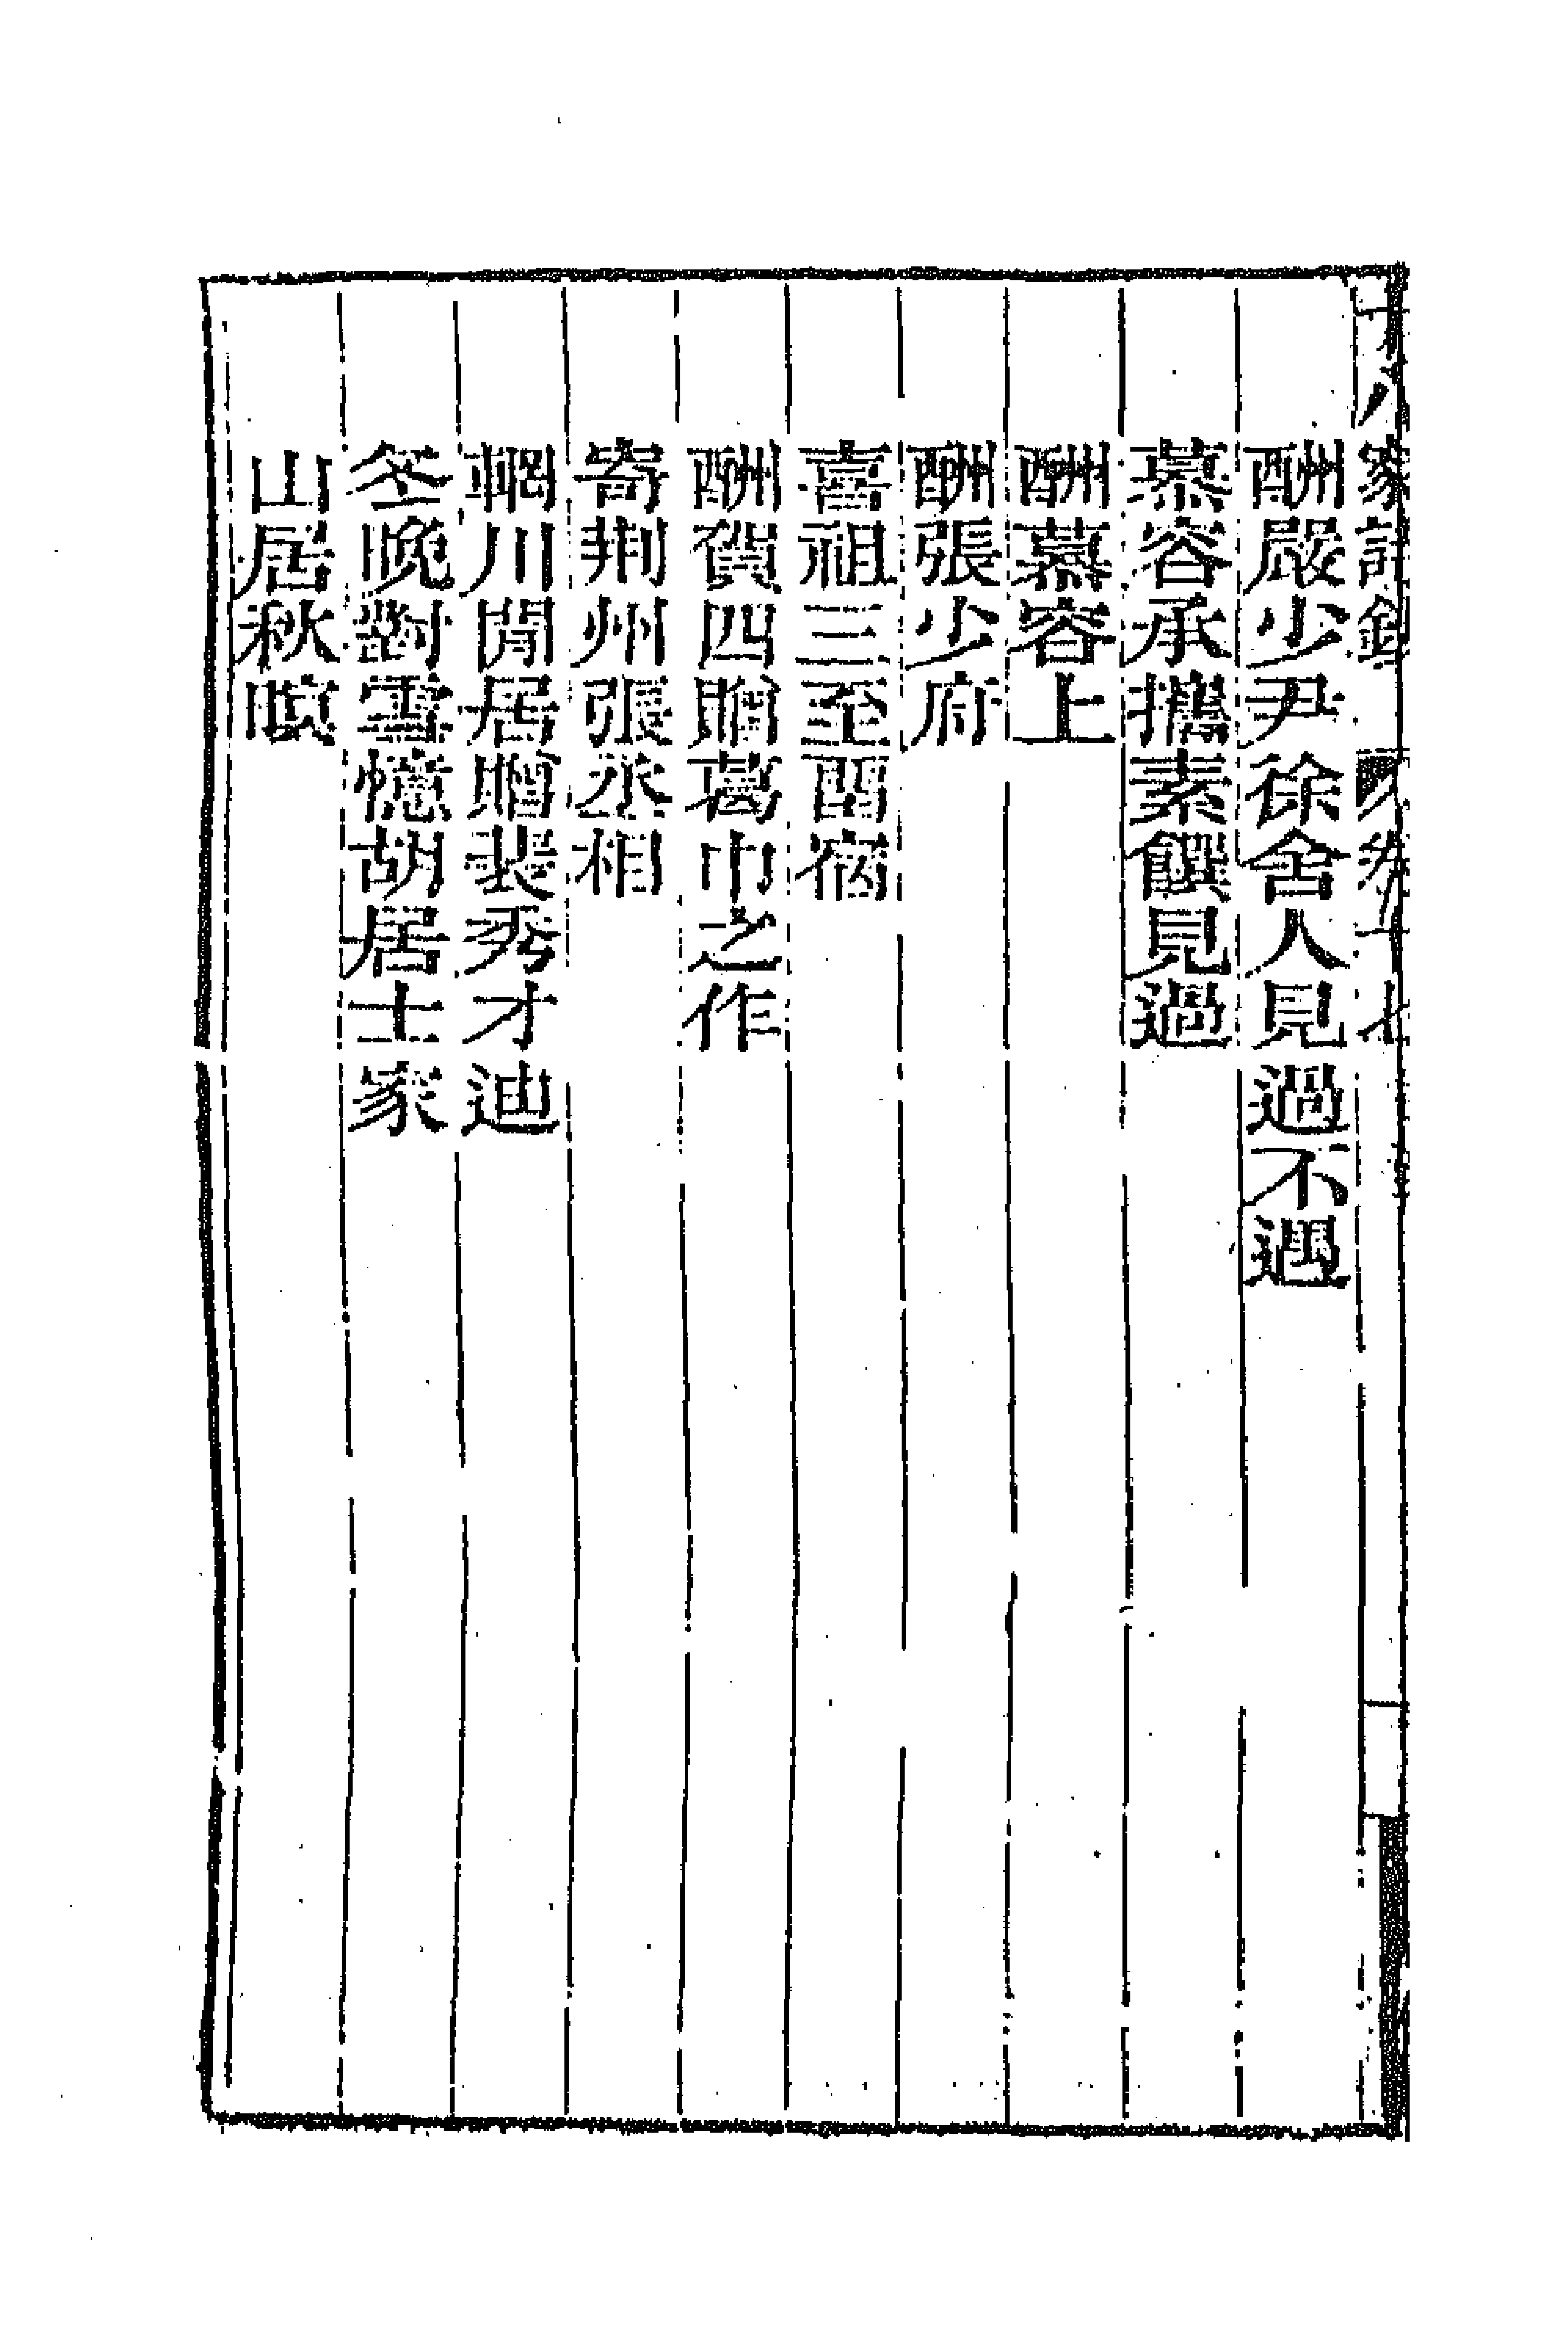 十八家詩鈔 卷十七
酬嚴少尹徐舍人見過不遇
慕容承攜素饌見過
酬慕容上
酬張少府
喜祖三至畱宿
酬賀四贈葛巾之作
寄荆州張丞相
輞川閒居贈裴秀才迪
冬晚對雪憶胡居士家
山居秋暝